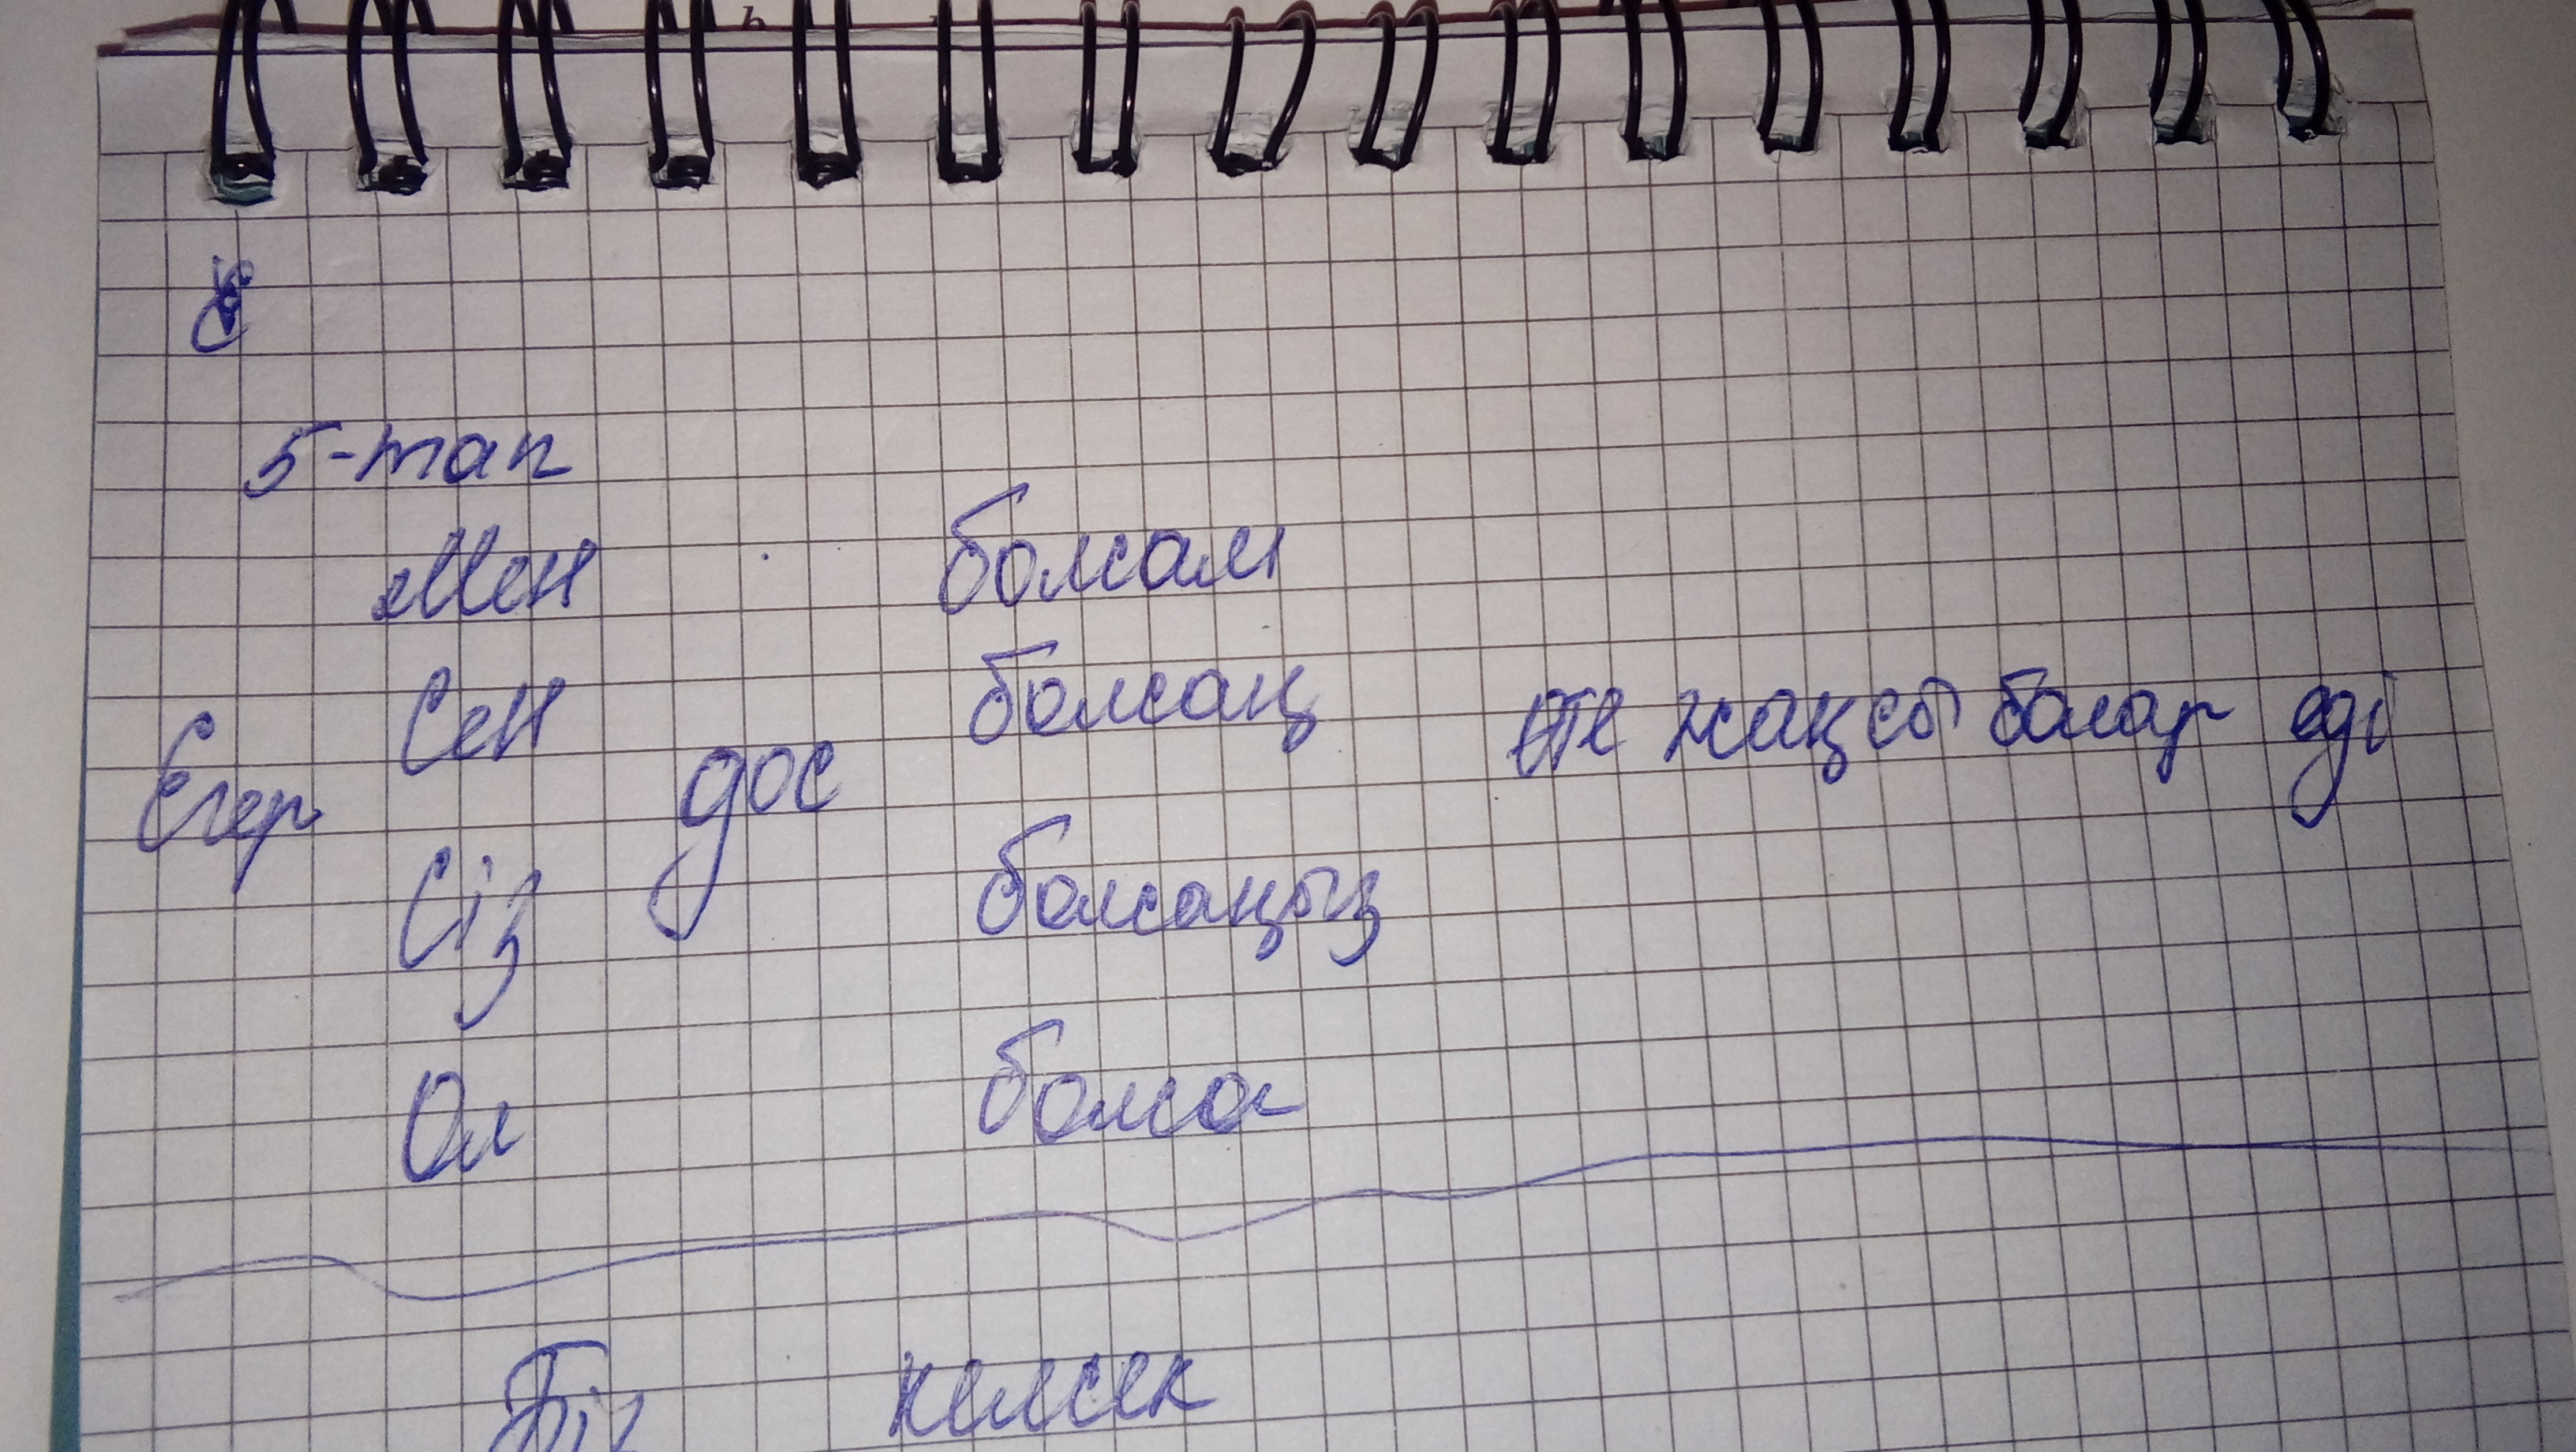 5-тап
Мен болсам
Сен болсаң
Егер дос өте жақсы болар еді
Сіз болсаңыз
Ол болса
Біз келсек